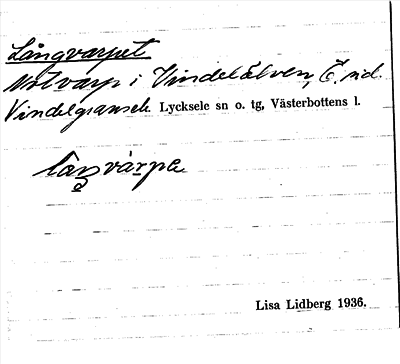 Långvarpet
Notvarp i Vindelälven, Ö. sid.
Vindelgransele Lycksele sn o. tg, Västerbottens l.
Lisa Lidberg 1936.